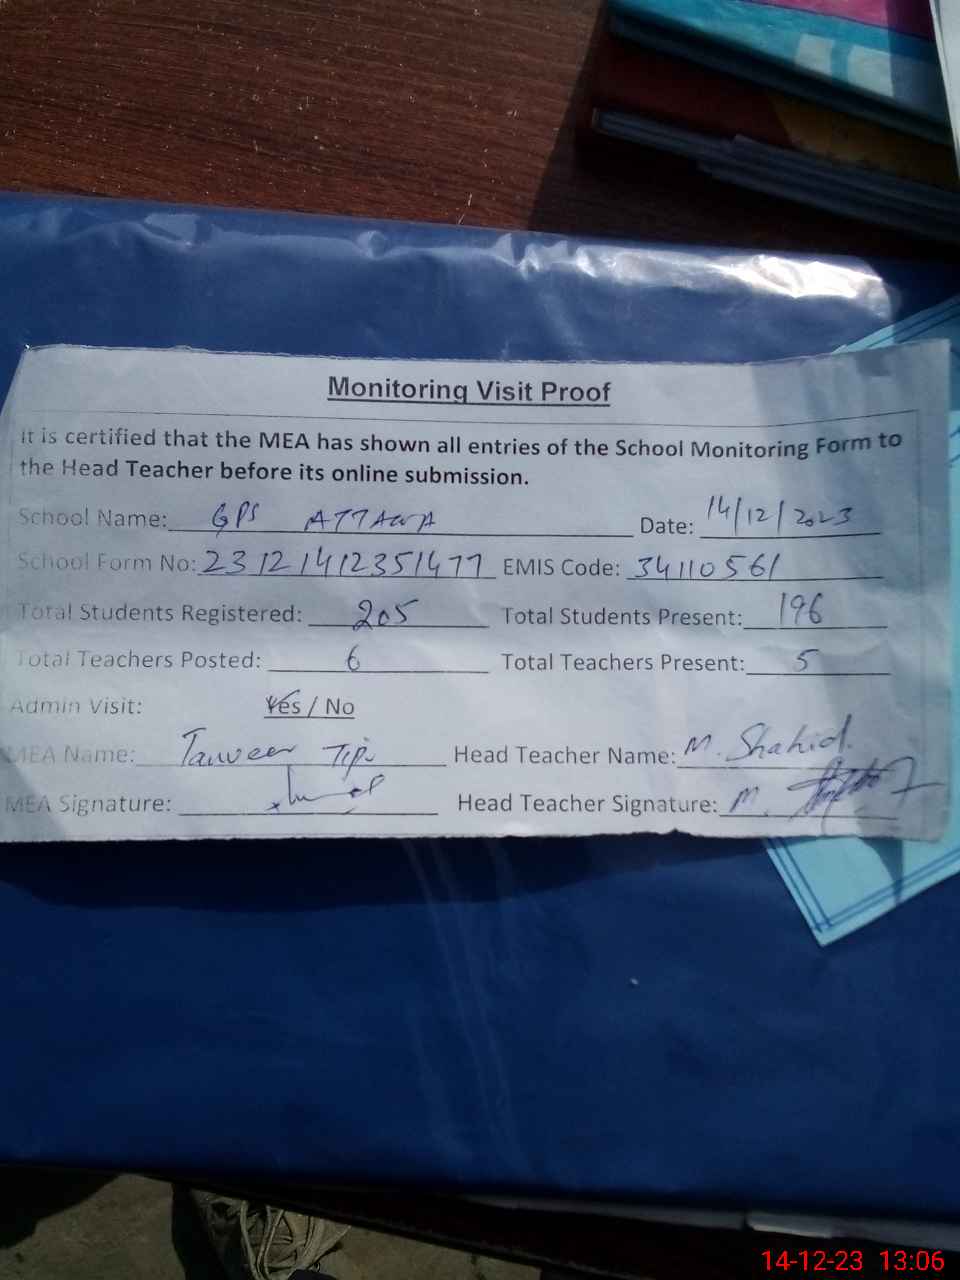 Monitoring Visit Proof
It is certified that the MEA has shown all entries of the School Monitoring Form to
the Head Teacher before its online submission.
School Name: GPS ATTAWA Date: 14/12/2023
School Form No: 23121412351477 EMIS Code: 34110561
Total Students Registered: 205 Total Students Present: 196
Total Teachers Posted: 6 Total Teachers Present: 5
Admin Visit: Yes / No
MEA Name: Tanveer Tipu Head Teacher Name: M. Shahid.
MEA Signature: Head Teacher Signature: M.
14-12-23 13:06